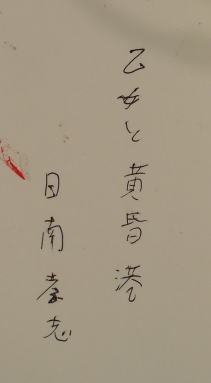 乙女と黄昏港
日南孝志